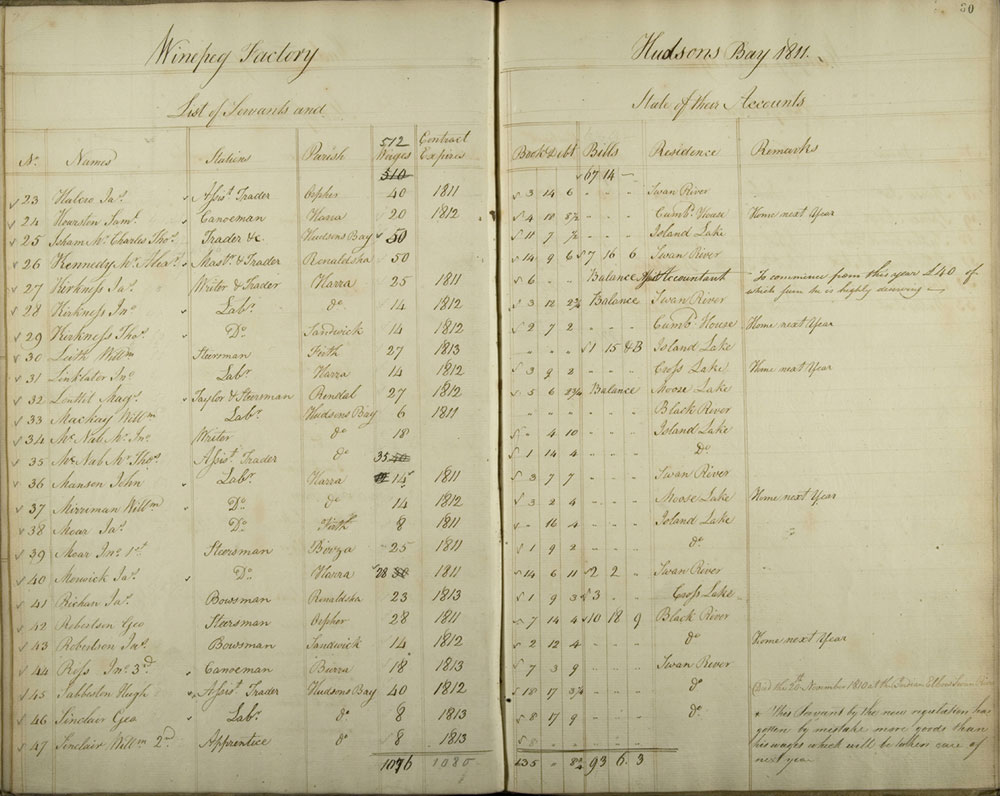 30
Winepeg Factory Hudsons Bay 1811.
List of Servants and State of their Accounts
No. Names Stations Parish 512 Wages Contract Expires Book Debt Bills Residence Remarks
510 67 14 —
23 Halcro Jas. Assist. Trader Orpher 40 1811 3 14 6 Swan River
24 Hourston Jams. Canoeman Harra 20 1812 4 10 8½ Cumbd. House Home next Year
25 Isham Mr. Charles Thos. Trader &c. Hudsons Bay 50 11 7 ½ Island Lake
26 Kennedy Mr. Alexr. Mastr. & Trader Renaldsha 50 14 9 6 7 16 6 Swan River
27 Kirkness Jas. Writer & Trader Harra 25 1811 6 Balance Accountant To commence from this year £40 of which sum he is highly deserving —
28 Kirkness Jno. Labr. do. 14 1812 3 12 2¾ Balance Swan River
29 Kirkness Thos. Do. Sandwick 14 1812 2 7 2 Cumbd. House Home next Year
30 Leith Willm Steersman Firth 27 1813 1 15 Island Lake
31 Linklater Jno. Labr. Harra 14 1812 3 9 2 Cross Lake Home next Year
32 Louttit Mags. Taylor & Steersman Rendal 27 1812 5 6 2¾ Balance Moose Lake
33 Mackay Willm Labr. Hudsons Bay 6 1811 Black River
34 McNab Mr. Jno. Writer do 18 4 10 Island Lake
35 McNab Mr. Thos. Assist. Trader do 35 40 1 14 4 Do.
36 Manson John Labr. Harra 14 1811 3 7 7 Swan River
37 Merriman Willm Do. do 14 1812 3 2 4 Moose Lake Home next Year
38 Moar Jas. Do. Firth 8 1811 16 4 Island Lake
39 Moar Jno. 1st. Steersman 25 1811 1 9 2 do.
40 Morwick Jas. Do. Harra 28 30 1811 14 6 11 2 2 Swan River
41 Richan Jas. Bowsman Renaldsha 23 1813 1 9 3 3 Cross Lake
42 Robertson Geo Steersman Orpher 28 1811 7 14 4 10 18 9 Black River
43 Robertson Jno. Bowsman Sandwick 14 1812 2 12 4 do Home next Year
44 Ross Jno. 3rd. Canoeman Burra 18 1813 7 3 9 Swan River
45 Sabbeston Hugh Assist. Trader Hudsons Bay 40 1812 18 17 3¼ do Died the 20th. November 1810 at the Indian
46 Sinclair Geo Labr. do 8 1813 8 17 9 do. * This Servant by the new regulation has gotten by mistake more goods than
47 Sinclair Willm 2d. Apprentice do 8 1813 8 his wages which will be taken care of
1076 1080 135 " 8¾ 93 6. 3 next year